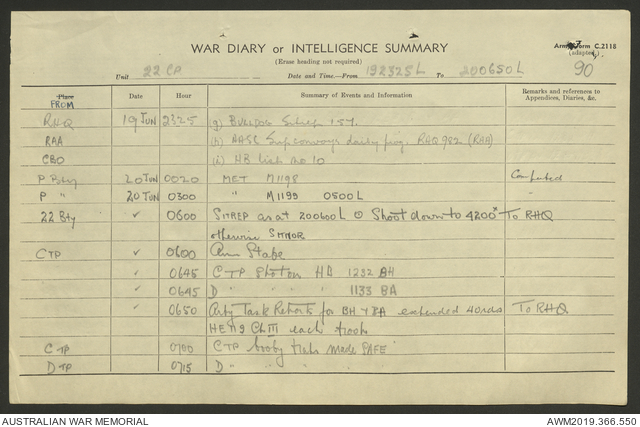 WAR DIARY or INTELLIGENCE SUMMARY
Army Form C.2118
(adapted)
(Erase heading not required)
90
Unit 22 CP Date and Time.—From 192325L To 200650L
Place Date Hour Summary of Events and Information Remarks and references to Appendices, Diaries, &c.
FROM
RHQ 19 JUN 2325 (g) BULLDOG Sitrep 157.
RAA (h) RHQ 982 (RAA)
CBO (i) HB list no 10
P Bty 20 JUN 0020 MET M1198 Computed
P " 20 JUN 0300 " M1199 0500L "
22 Bty ✓ 0600 SITREP as at 200600L Shoot down to 4200x To RHQ
otherwise SITNOR
CTP ✓ 0600 Stage
✓ 0645 CTP Shot on HB 1232 BH
✓ 0645 D " " " 1133 BA
✓ 0650 Arty Task Reports for BH & BA extended 40rds To RHQ
HE each troop
C TP 0700 CTP booby traps made SAFE
D TP 0715 D " " " " "
AUSTRALIAN WAR MEMORIAL AWM2019.366.550